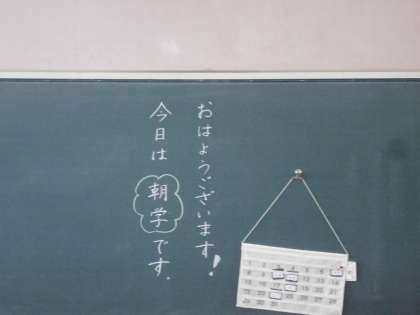 おはようございます!
今日は朝学です.